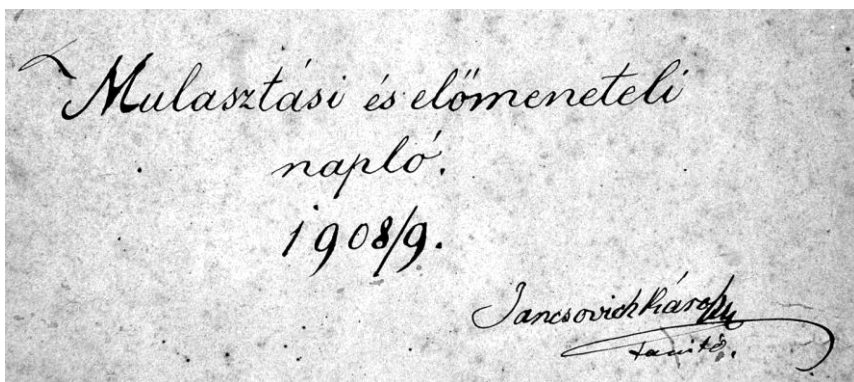 Mulasztási és előmeneteli
napló.
1908/9.
Jancsovich Károly
tanító.